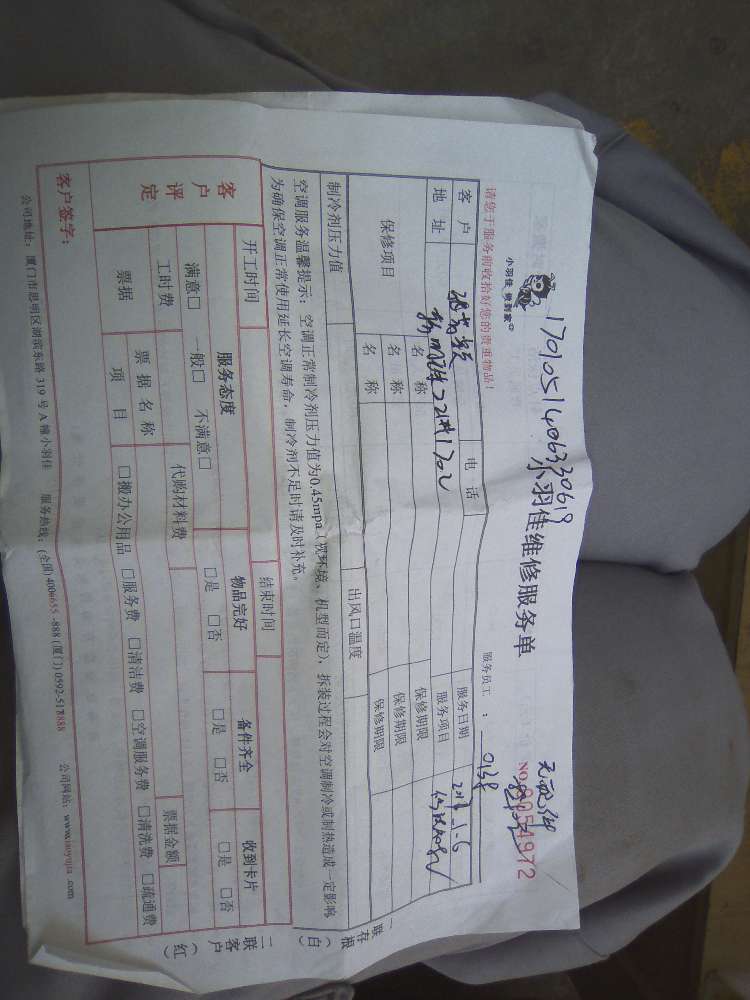 请您于服务前收拾好您的贵重物品!
小羽佳 做到家
1701051406330619
小羽佳维修服务单
NO.8054972
服务员工:
客户
电话
服务日期
地址
22#1702
服务项目
保修项目
名称
保修期限
名称
保修期限
名称
保修期限
制冷剂压力值
出风口温度
空调服务温馨提示:空调正常制冷剂压力值为0.45mpa(视环境、机型而定),拆装过程会对空调制冷或制热造成一定影响
为确保空调正常使用延长空调寿命,制冷剂不足时请及时补充。
开工时间
结束时间
客户评定
服务态度
物品完好
备件齐全
收到卡片
满意□ 一般□ 不满意□
□是 □否
□是 □否
□是 □否
工时费
代购材料费
票据
票据名称
票据金额
项目
□搬办公用品 □服务费 □清洁费 □空调服务费 □清洗费 □疏通费
客户签字:
公司地址:厦门市思明区湖滨东路319号A幢小羽佳
服务热线:(全国)4006655-888(厦门)0592-5178888
公司网站:www.xiaoyujia.com
一联存根(白)
二联客户(红)